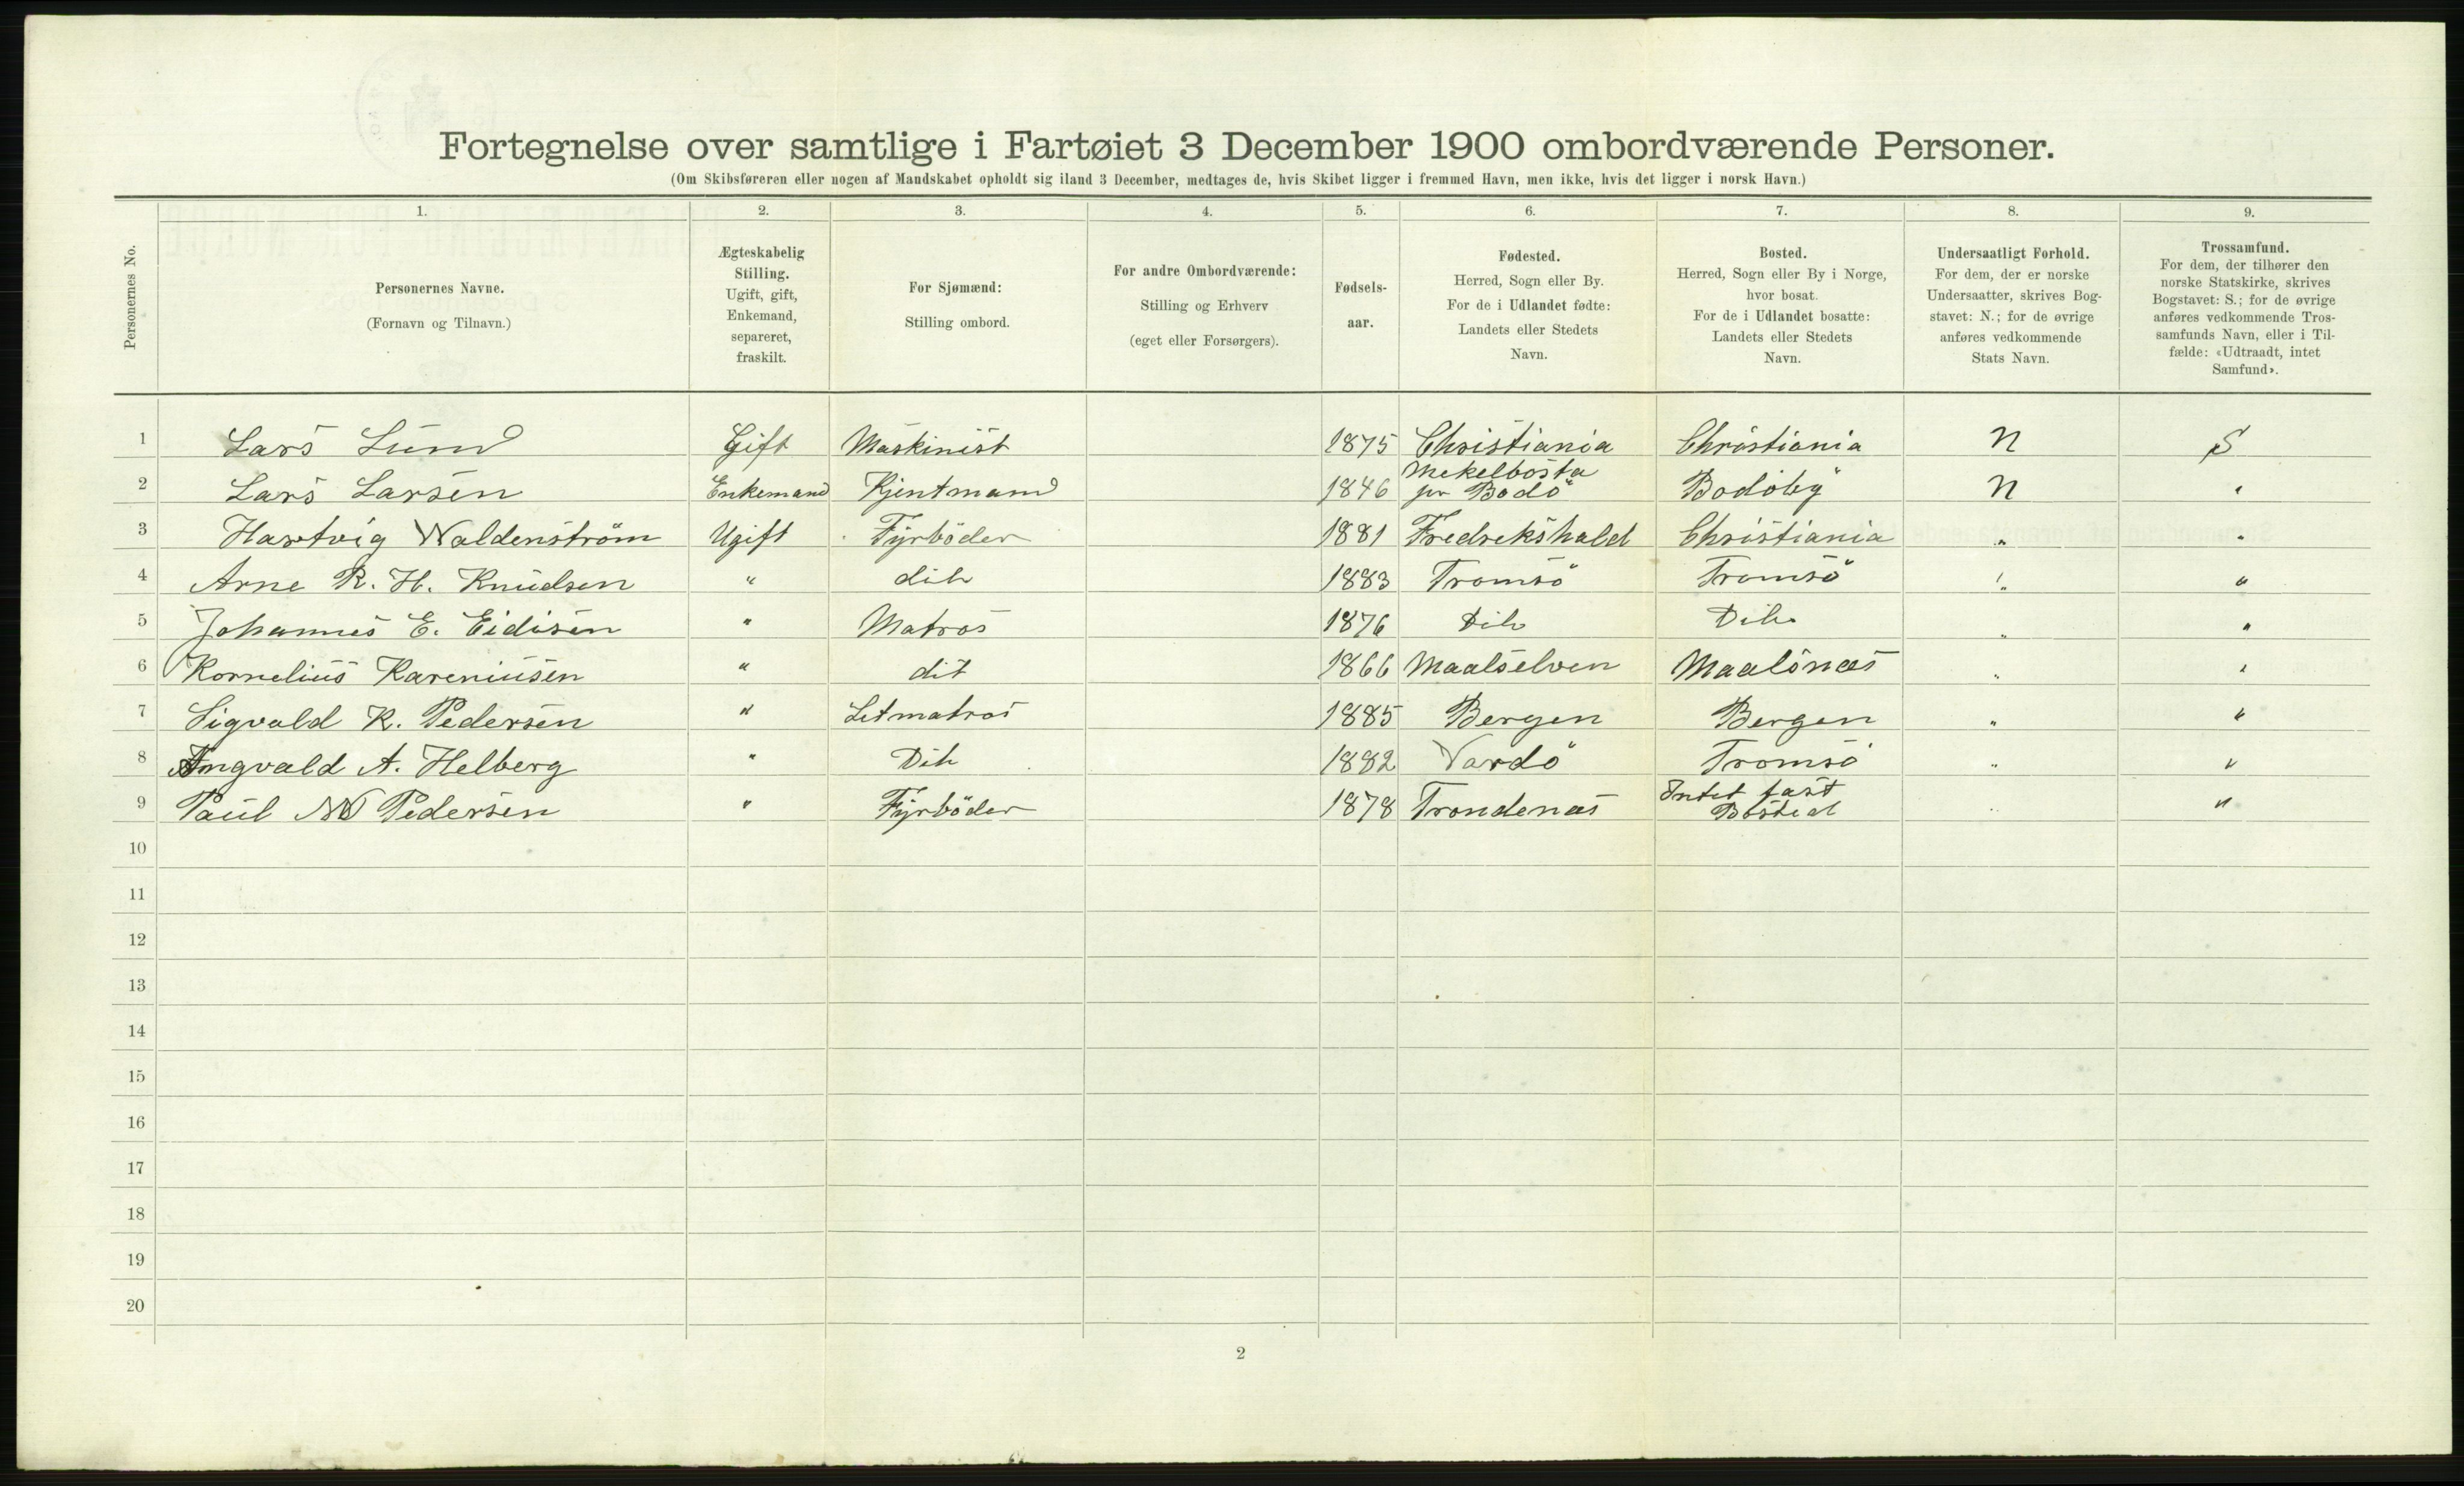 Fortegnelse over samtlige i Fartøiet 3 December 1900 ombordværende Personer.
(Om Skibsføreren eller nogen af Mandskabet opholdt sig iland 3 December, medtages de, hvis Skibet ligger i fremmed Havn, men ikke, hvis det ligger i norsk Havn.)
Personernes No.
1. 2. 3. 4. 5. 6. 7. 8. 9.
Personernes Navne.
(Fornavn og Tilnavn.)
Ægteskabelig
Stilling.
Ugift, gift,
Enkemand,
separeret,
fraskilt.
For Sjømænd:
Stilling ombord.
For andre Ombordværende:
Stilling og Erhverv
(eget eller Forsørgers).
Fødsels-
aar.
Fødested.
Herred, Sogn eller By.
For de i Udlandet fødte:
Landets eller Stedets
Navn.
Bosted.
Herred, Sogn eller By i Norge,
hvor bosat.
For de i Udlandet bosatte:
Landets eller Stedets
Navn.
Undersaatligt Forhold.
For dem, der er norske
Undersaatter, skrives Bog-
stavet: N.; for de øvrige
anføres vedkommende
Stats Navn.
Trossamfund.
For dem, der tilhører den
norske Statskirke, skrives
Bogstavet: S.; for de øvrige
anføres vedkommende Tros-
samfunds Navn, eller i Til-
fælde: «Udtraadt, intet
Samfund».
1 Lars Lund Gift Maskinist 1875 Christiania Christiania N S
2 Lars Larsen Enkemand Kjentmand 1846 Mekelbosta pr Bodö Bodöby N "
3 Hartvig Waldenström Ugift Fyrböder 1881 Fredrekshald Christiania " "
4 Arne R. H. Knudsen " dito 1883 Tromsö Tromsö " "
5 Johannes E. Eidisen " Matros 1876 Dito Dito " "
6 Kornelius Kareniusen " dit 1866 Maalselven Maalsnæs " "
7 Sigvald K. Pedersen " Letmatros 1885 Bergen Bergen " "
8 A. Helberg " Dito 1882 Vardö Tromsö " "
9 Paul Pedersen " Fyrböder 1878 Trondenæs Intet fast Bosted " "
10
11
12
13
14
15
16
17
18
19
20
2